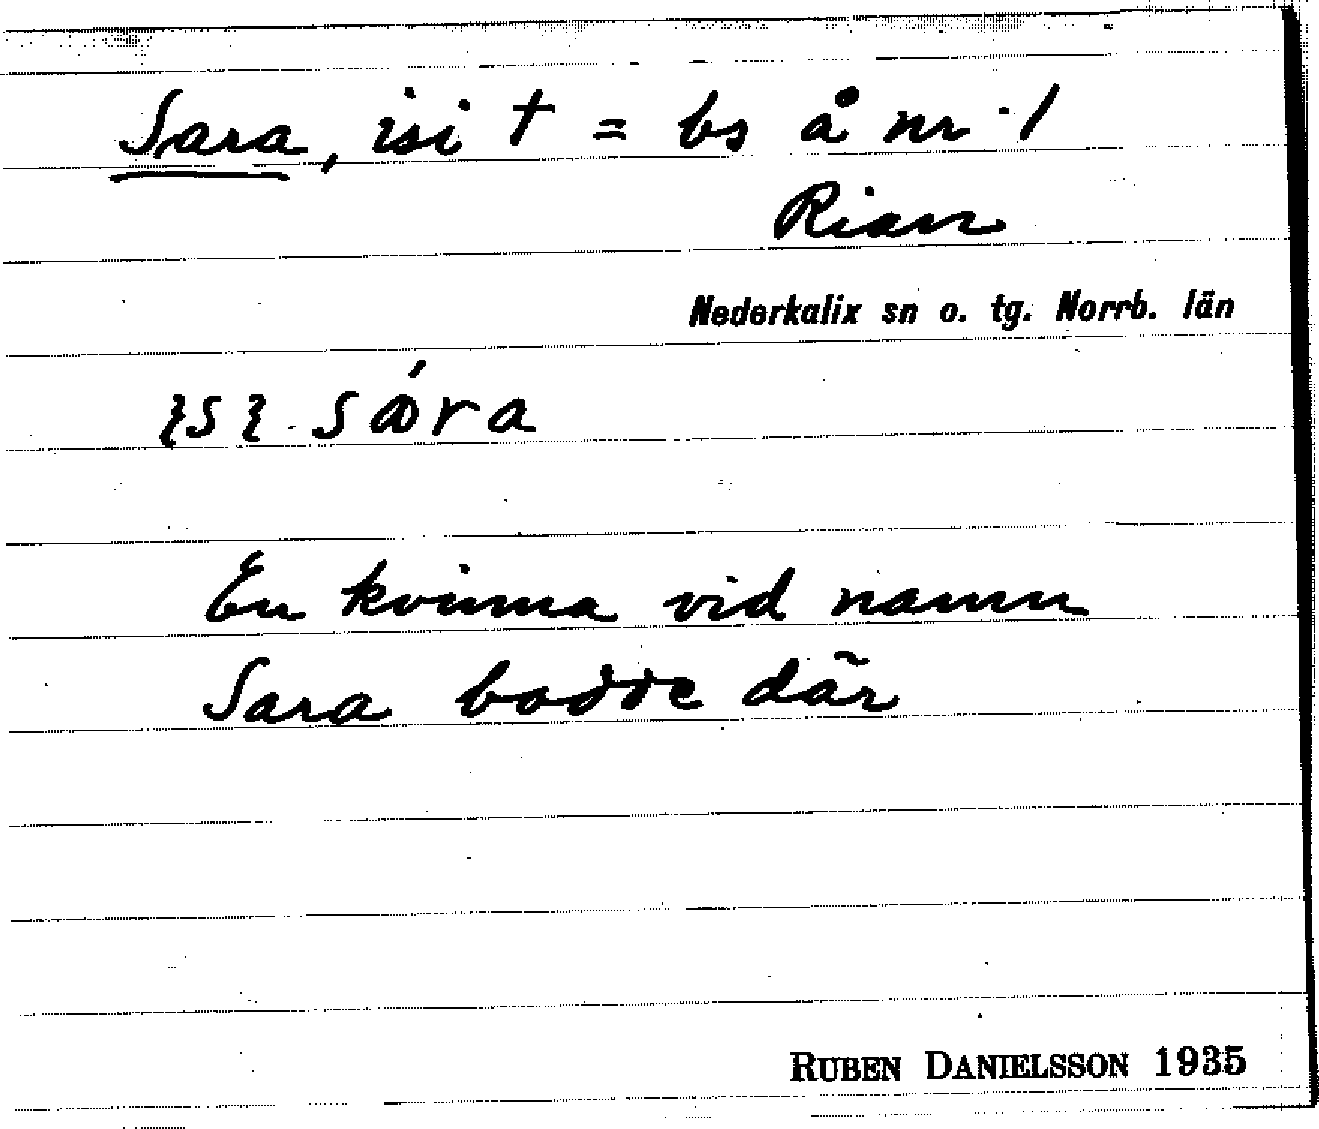 Sara, isi † = bs å nr 1
Rian
Nederkalix sn o. tg. Norrb. län
}s{ sára
En kvinna vid namn
Sara bodde där
RUBEN DANIELSSON 1935